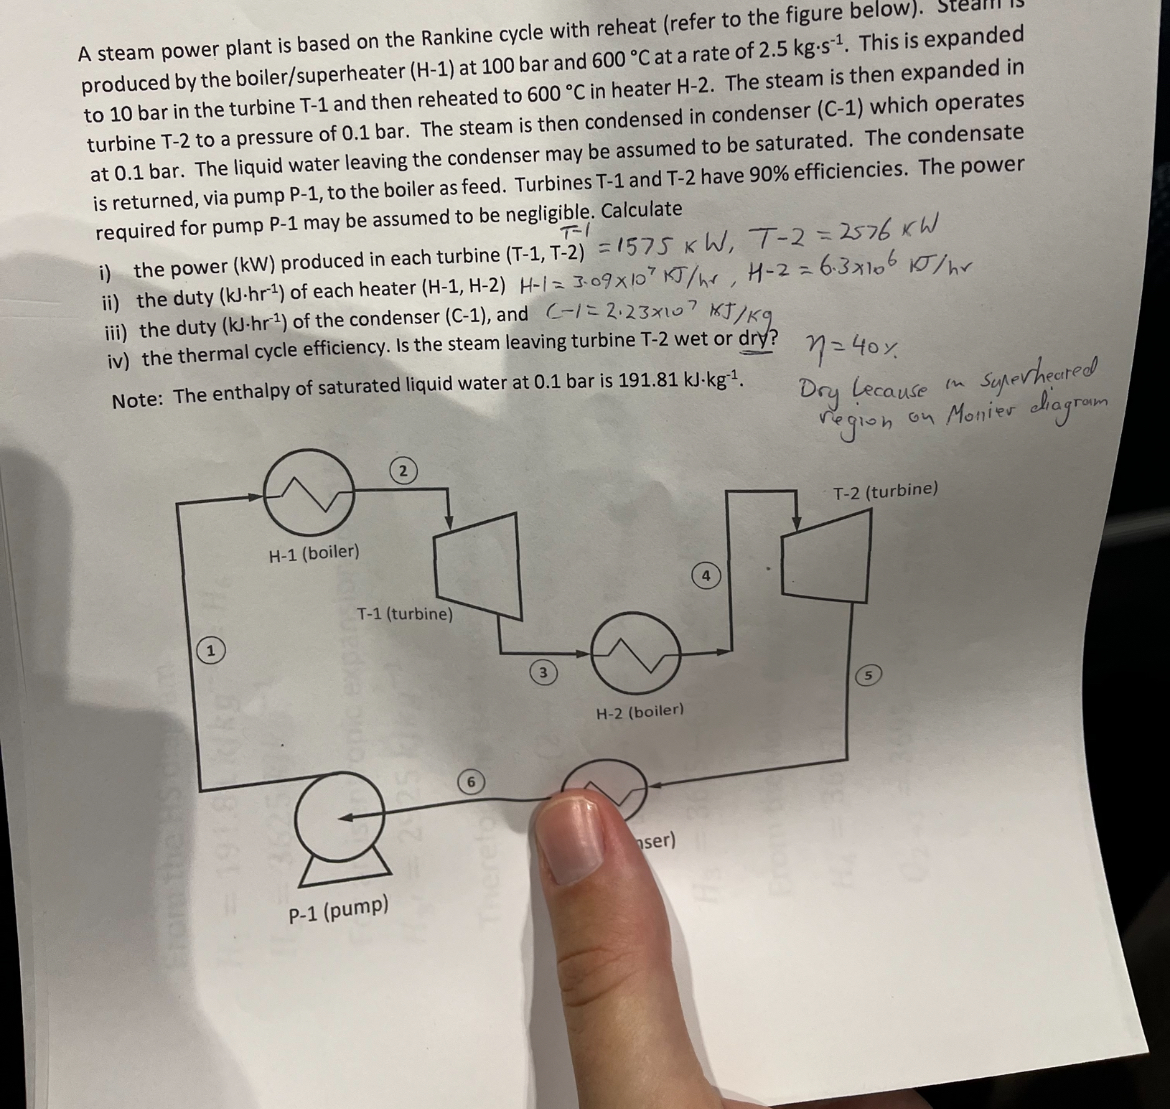 A steam power plant is based on the Rankine cycle with reheat (refer to the figure below). Steam is
produced by the boiler/superheater (H-1) at 100 bar and 600 °C at a rate of 2.5 kg·s⁻¹. This is expanded
to 10 bar in the turbine T-1 and then reheated to 600 °C in heater H-2. The steam is then expanded in
turbine T-2 to a pressure of 0.1 bar. The steam is then condensed in condenser (C-1) which operates
at 0.1 bar. The liquid water leaving the condenser may be assumed to be saturated. The condensate
is returned, via pump P-1, to the boiler as feed. Turbines T-1 and T-2 have 90% efficiencies. The power
required for pump P-1 may be assumed to be negligible. Calculate
i) the power (kW) produced in each turbine (T-1, T-2) T-1 = 1575 KW, T-2 = 2576 KW
ii) the duty (kJ·hr⁻¹) of each heater (H-1, H-2) H-1 = 3.09x10⁷ KJ/hr, H-2 = 6.3x10⁶ KJ/hr
iii) the duty (kJ·hr⁻¹) of the condenser (C-1), and C-1 = 2.23x10⁷ KJ/kg
iv) the thermal cycle efficiency. Is the steam leaving turbine T-2 wet or dry? η = 40%
Note: The enthalpy of saturated liquid water at 0.1 bar is 191.81 kJ·kg⁻¹.
Dry because in superheared
region on Monier diagram
2
T-2 (turbine)
H-1 (boiler)
4
T-1 (turbine)
1
3
5
H-2 (boiler)
6
nser)
P-1 (pump)